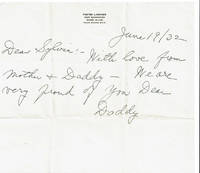 June 19/32
Dear Sylvia :- With love from
Mother & Daddy - We are
very proud of you Dear
Daddy